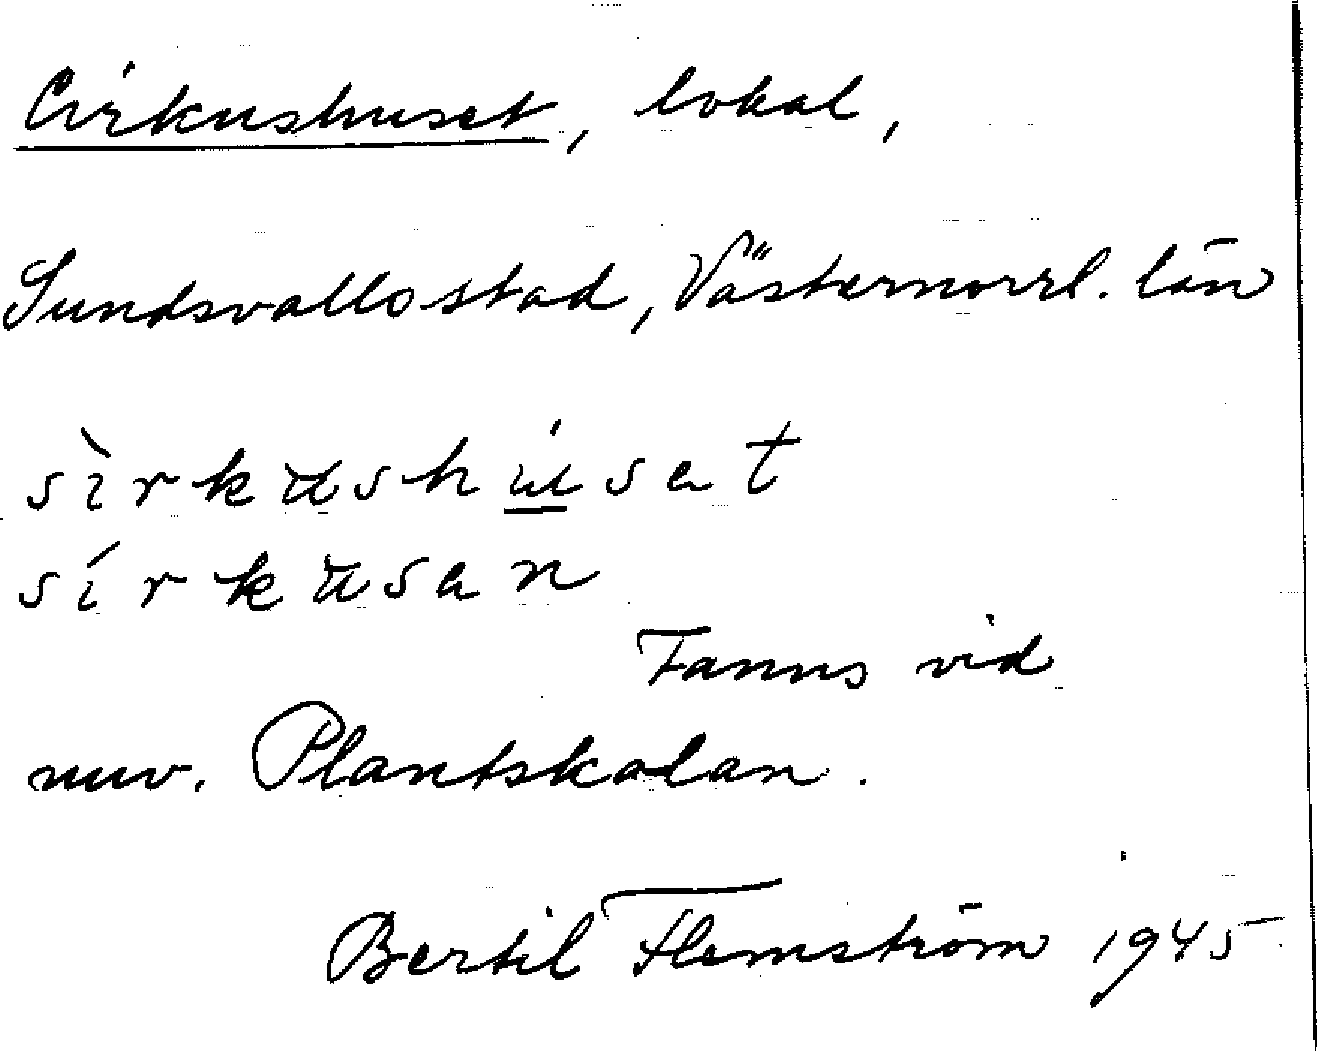 Cirkushuset, lokal,
Sundsvalls stad, Västernorrl. län
sìrkushúsat
sírkusan
Fanns vid
nuv. Plantskolan.
Bertil Flemström 1945